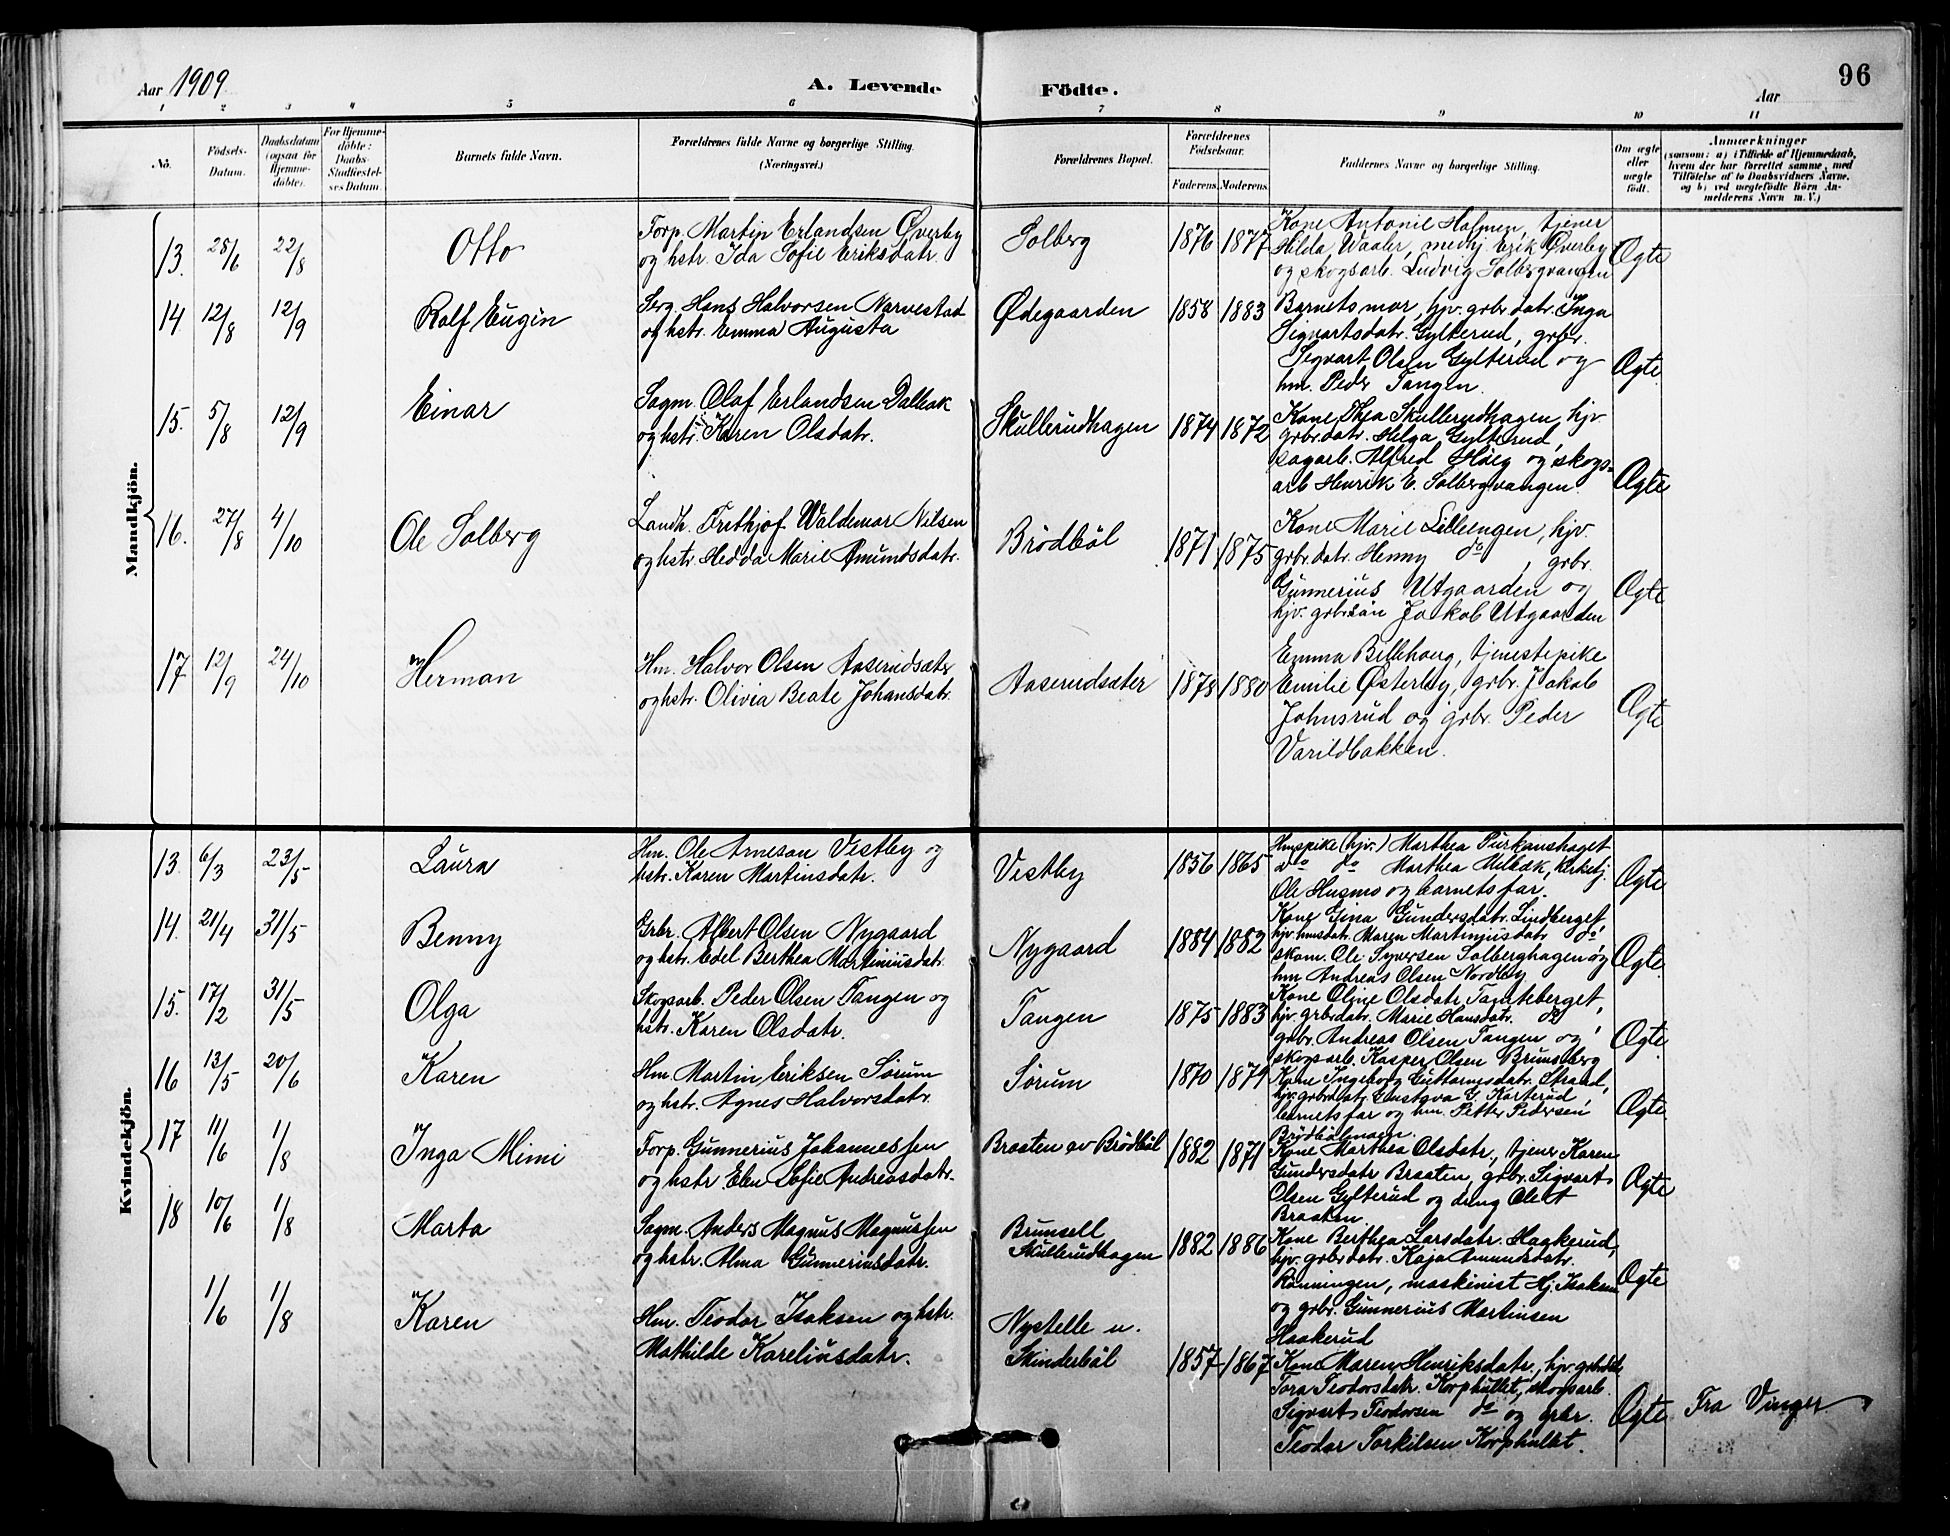 Aar 1909. A. Levende Födte. Aar 96
1 2 3 4 5 6 7 8 9 10 11
No. Födsels-Datum. Daabsdatum (ogsaa for Hjemmedöbte). For Hjemmedöbte: Daabs-Stadfæstelses Datum. Barnets fulde Navn. Forældrenes fulde Navne og borgerlige Stilling. (Næringsvei.) Forældrenes Bopæl. Forældrenes Födselsaar. Faderens. Moderens. Faddernes Navne og borgerlige Stilling. Om ægte eller uægte födt. Anmærkninger (saasom: a) i Tilfælde af Hjemmedaab, hvem der har forrettet samme, med Tilföielse af to Daabsvidners Navne, og b) ved uægtefödte Börn Anmelderens Navn m. V.)
Mandkjön.
13. 25/6 22/8 Otto
Forp. Martin Erlandsen Øverby
og hstr. Ida Sofie Eriksdatr.
Solberg 1876 1877
Kone Antonie Holmen, tjener
Hilda Waaler, medhj. Erik Øverby
og skogsarb. Ludvig Solbergvangen
Ægte
14 12/8 12/9 Rolf Eugin
Serg. Hans Halvorsen Narvestad
og hstr. Emma Augusta
Ødegaarden 1858 1883
Barnets mor, hjv. grbr.datr. Inga
Sigvartsdatr. Gylterud, grbr.
Sigvart Olsen Gylterud og
hm. Peder Tangen.
Ægte
15. 5/8 12/9 Einar
Sagm. Olaf Erlandsen Dalbak
og hstr. Karen Olsdatr.
Skullerudhagen 1874 1872
Kone Thea Skullerudhagen, hjv.
grbr.datr. Helga Gylterud,
sagarb. Alfred Høeg og skogs-
arb Henrik E. Solbergvangen.
Ægte
16. 27/8 4/10 Ole Solberg
Landh. Frithjof Waldemar Nilsen
og hstr. Hedda Marie Ømundsdatr.
Brödböl 1871 1875
Kone Marie Lilleengen, hjv.
grbr.datr. Henny do, grbr.
Gunnerius Utgaarden og
hjv. grbr.sön Jakob Utgaarden
Ægte
17 12/9 24/10 Herman
Hm. Halvor Olsen Aaserudsæter
og hstr. Olivia Beate Johansdatr.
Aaserudsæter 1878 1880
Emma Billehaug, tjenestepike
Emilie Østerby, grbr. Jakob
Johnsrud og grbr. Peder
Varildbakken.
Ægte
Kvindekjön.
13. 6/3 23/5 Laura
Hm. Ole Arnesen Vestby og
hstr. Karen Martinsdatr.
Vestby 1856 1865
Hmspike (hjv.) Marthea Purkanshaget
do do Marthea Milbak, kirketj.
Ole Husmo og barnets far.
Ægte
14. 21/4 31/5 Benny
Grbr. Albert Olsen Nygaard
og hstr. Edel Berthea Martiniusdatr.
Nygaard 1884 1882
Kone Gina Gundersdatr. Lindberget,
hjv. hmsdatr. Maren Martiniusdatr do,
skom. Ole Syversen Solberghagen og
hm Andreas Olsen Nordby
Ægte
15. 17/2 31/5 Olga
Skogsarb. Peder Olsen Tangen og
hstr. Karen Olsdatr.
Tangen 1875 1883
Kone Oline Olsdatr. Tomteberget,
hjv. grbrdatr. Marie Hansdatr. do,
grbr. Andreas Olsen Tangen og
skogsarb. Kasper Olsen Brunsberg
Ægte
16 13/5 20/6 Karen
Hm. Martin Eriksen Sörum
og hstr. Agnes Halvorsdatr.
Sörum 1870 1879
Kone Ingeborg Guttormsdatr. Strand,
hjv. grbrdatr. Gustava G. Karterud,
barnets far og hm. Petter Pedersen
Brödbölmoen.
Ægte
17 11/6 1/8 Inga Mimi
Forp. Gunnerius Johannessen
og hstr. Elen Sofie Andreasdatr.
Braaten av Brödböl 1882 1871
Kone Marthea Olsdatr., tjener Karen
Gundersdatr Braaten, grbr. Sigvart
Olsen Gylterud og dreng Olert
Braaten
Ægte
18 10/6 1/8 Marta
Sagm. Anders Magnus Magnussen
og hstr. Alma Gunneriusdatr.
Brunsell
Skullerudhagen 1882 1886
Kone Berthea Larsdatr. Haakerud,
hjv. grbrdatr. Kaja Amundsdatr.
Rönningen, maskinist Hj. Isaksen
og grbr. Gunnerius Martinsen
Haakerud
Ægte
1/6 1/8 Karen
Hm. Teodor Isaksen og hstr.
Mathilde Kareliusdatr.
Nystelle u.
Skinderböl 1857 1867
Kone Maren Henriksdatr., hjv. grbrdtr.
Tora Teodorsdatr. Korphullet, skogsarb.
Sigvart Teodorsen do og grbr.
Teodor Torkilsen Korphullet.
Ægte Fra Vinger